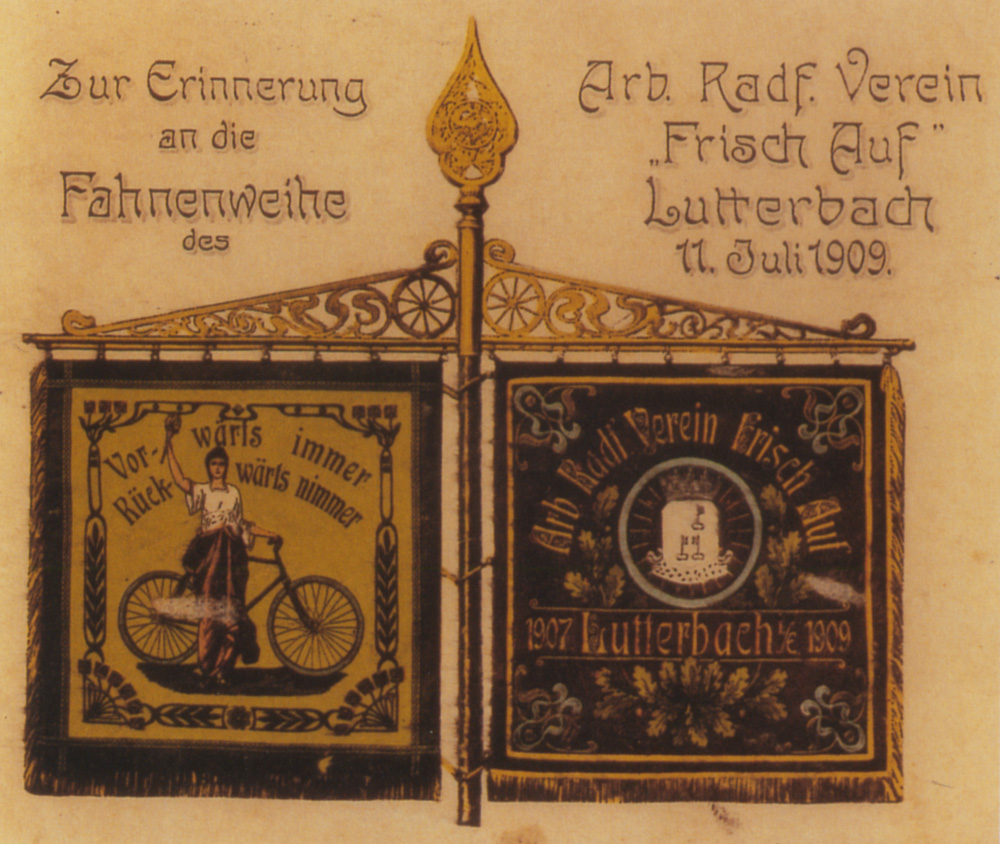 Zur Erinnerung
an die
Fahnenweihe
des
Arb. Radf. Verein
„Frisch Auf”
Lutterbach
11. Juli 1909.
Vor- wärts immer
Rück- wärts nimmer
Arb Radf Verein Frisch Auf
1907 Lutterbach i/E 1909